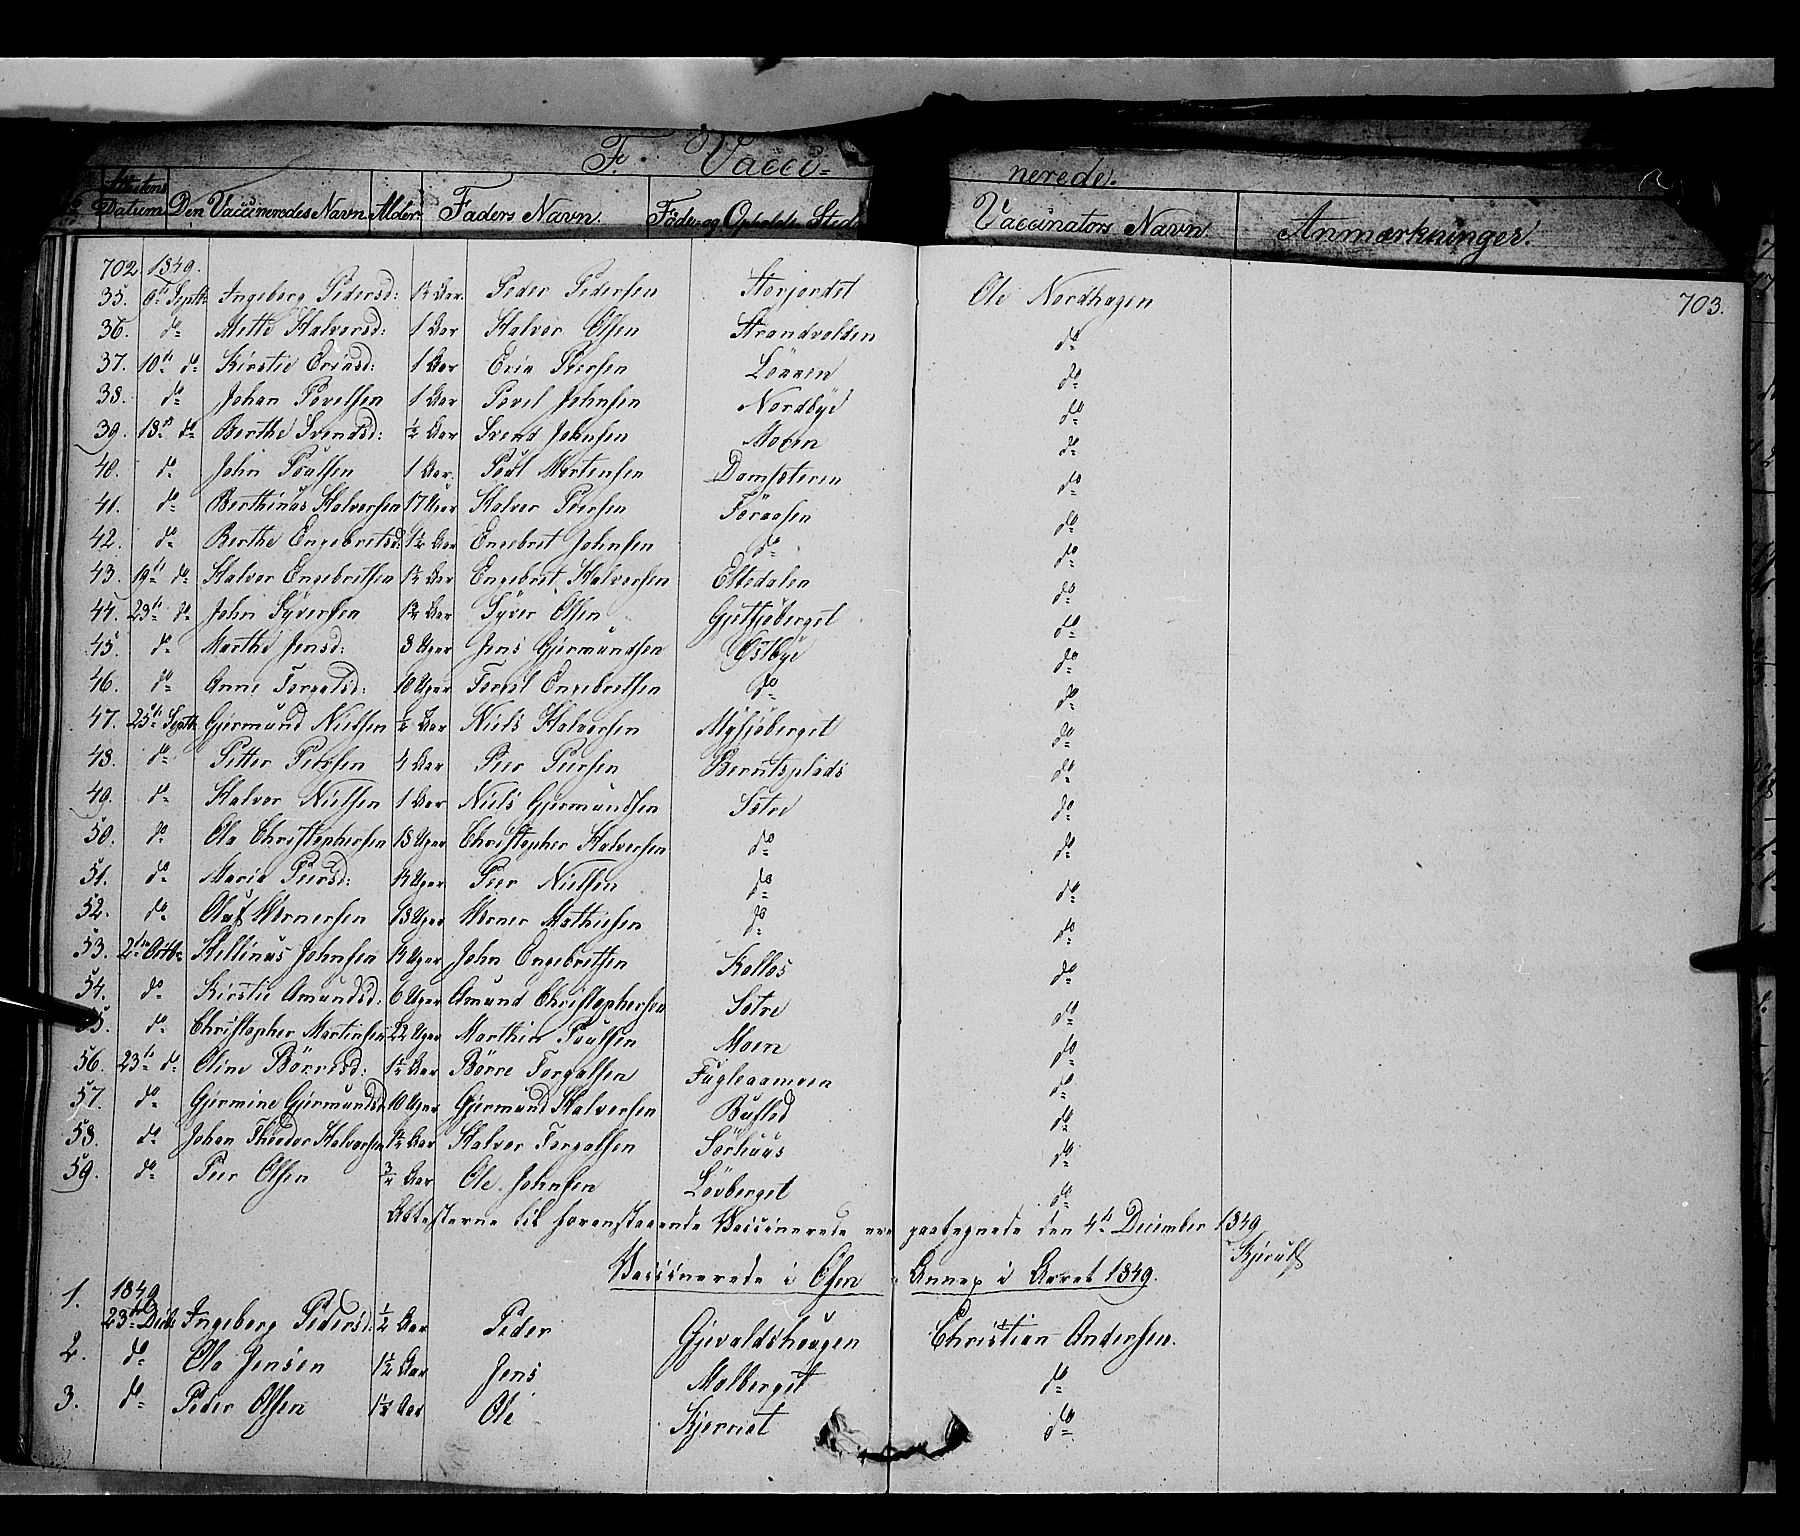 F. Vacci= nerede.
Attestens Datum Den Vaccineredes Navn Alder Faders Navn. Føde- og Opholds-Sted Vaccinators Navn. Anmærkninger.
702 1849. 703.
35. 9de Septb Ingeborg Pedersd: Aar. Peder Pedersen Storjordet Ole Nordhagen
36. do Mette Halvorsd: 1 Aar Halvor Olsen Strandvolden do
37. 10de do Kirstie 1 Aar Peersen do
38. do Johan Povelsen 1 Aar Povel Johnsen Nordbye do
39. 18de do Berthe Svendsd: ½ Aar Svend Johnsen Moren do
40. do John Poulsen 1 Aar. Poul Mortensen do
41. do Berthinus Halvorsen 17 Uger Halvor Peersen Føraasen do
42. do Berthe Engebretsd: 1½ Aar Engebret Johnsen do do
43. 19de do Halvor Engebretsen 1½ Aar Engebret Halvorsen Eltedalen do
44. 23de do John Syversen Aar Syver Olsen Gjetsjøberget do
45. do Marthe Jensd: 8 Uger Jens Gjermundsen Østbye do
46. do Anne Torgalsd: 10 Uger Torgal Engebretsen do do
47. 25de Septb Gjermund Nielsen ½ Aar Niels Halvorsen Mysjøberget do
48. do Petter Persen 4 Aar Peer Peersen Berntsplads do
49. do Halvor Nielsen 1 Aar Niels Gjermundsen Sætre do
50. do Ole Christophersen 18 Uger Christopher Halvorsen do do
51. do Maria Peersd: Uger Peer Nielsen do do
52. do Oluf Wernersen 13 Uger Werner Mathiesen do do
53. 2den Octb. Hellinus Johnsen Uger John Engebretsen Kolloş do
54. do Kirstie Amundsd: 6 Uger Amund Christophersen Sætre do
55. do Christopher Martinsen 22 Uger Marthin Poulsen Moen do
56. 23de do Oline Børresd: 1½ Aar Børre Torgalsen Fugleaamoen do
57. do Gjermine Gjermundsd 10 Uger Gjermund Halvorsen do
58. do Johan Theodor Halvorsen 1½ Aar Halvor Torgalsen Sørhuus do
59. do Peer Olsen Aar Ole Johnsen Løvberget do
Attesterne til foranstaaende Vaccinerede ere paategnede den 4de December 1849
Kjerulf
Vaccinerede i Osen Annex i Aaret 1849.
1849
1. 23de Decb Ingeborg Pedersd: ½ Aar Peder Gjevaldshougen Christian Andersen.
2. do Ola Jensen 1½ Aar Jens Molberget do
3. do Peder Olsen 1½ Aar Ole Kjernet do